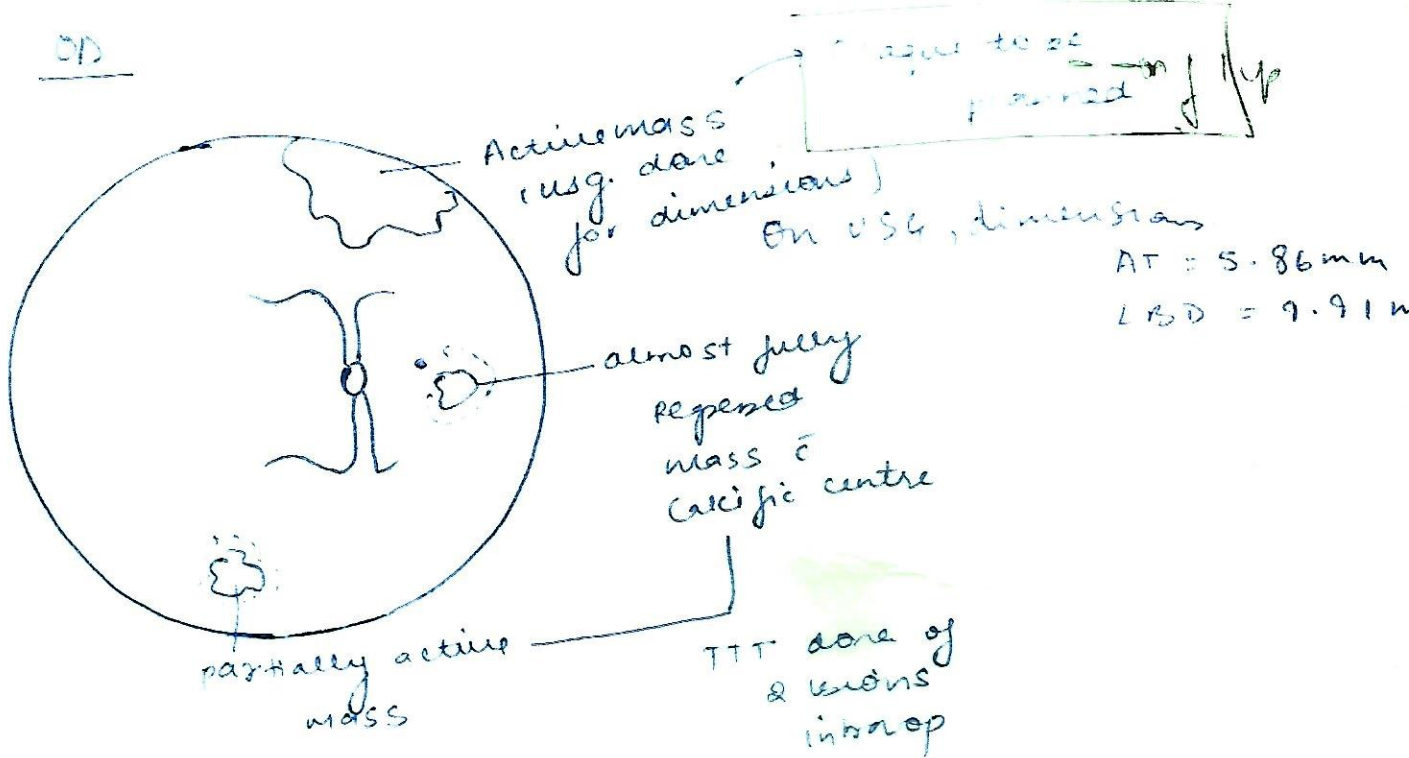 OD
to be
planned
Active mass
(usg. done
for dimensions)
On USG, dimensions
AT = 5.86mm
LBD = 9.91
almost fully
Regressed
mass c̄
Calcific centre
partially active
mass
TTT done of
2 lesions
intraop